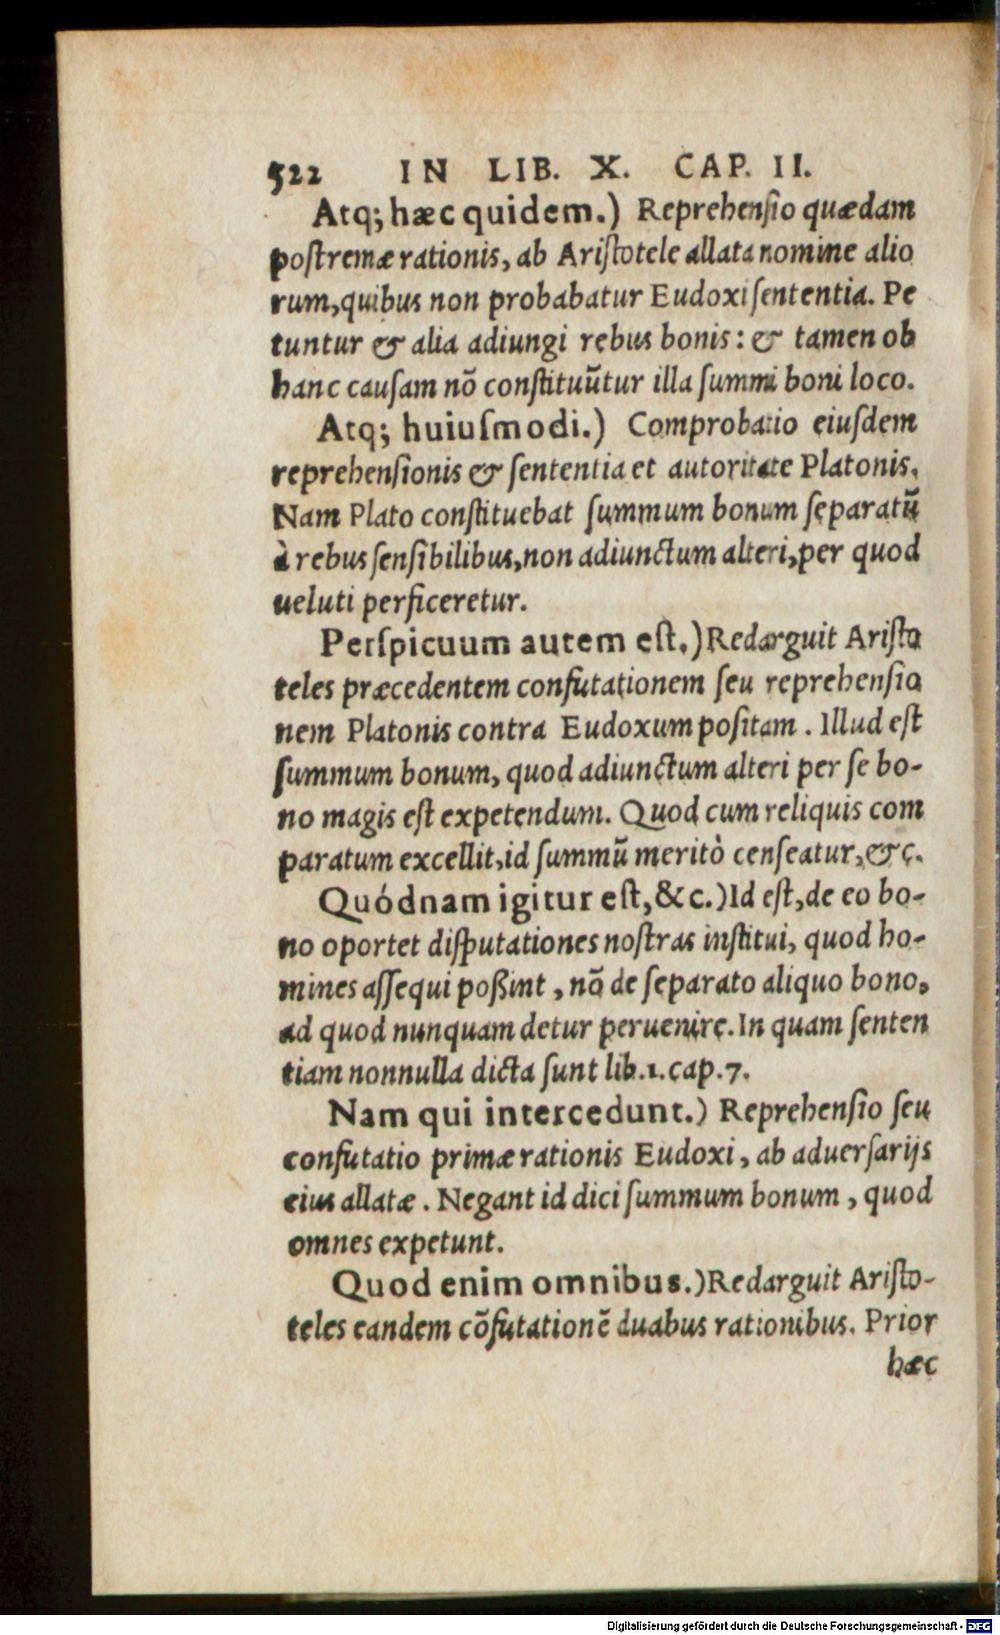 522 IN LIB. X. CAP. II.
Atq; hæc quidem.) Reprehenſio quædam
poſtremæ rationis, ab Ariſtotele allata nomine alio
rum, quibus non probabatur Eudoxi ſententia. Pe
tuntur & alia adiungi rebus bonis: & tamen ob
hanc cauſam nō conſtituūtur illa ſummi boni loco.
Atq; huiuſmodi.) Comprobatio eiuſdem
reprehenſionis & ſententia et autoritate Platonis.
Nam Plato conſtituebat ſummum bonum ſeparatū
à rebus ſenſibilibus, non adiunctum alteri, per quod
ueluti perficeretur.
Perſpicuum autem eſt.) Redarguit Ariſto
teles præcedentem confutationem ſeu reprehenſio
nem Platonis contra Eudoxum poſitam. Illud eſt
ſummum bonum, quod adiunctum alteri per ſe bo-
no magis eſt expetendum. Quod cum reliquis com
paratum excellit, id ſummū meritò cenſeatur, &c.
Quódnam igitur eſt, &c.) Id eſt, de eo bo-
no oportet diſputationes noſtras inſtitui, quod ho-
mines aſſequi poßint, nō de ſeparato aliquo bono,
ad quod nunquam detur peruenire. In quam ſenten
tiam nonnulla dicta ſunt lib. 1. cap. 7.
Nam qui intercedunt.) Reprehenſio ſeu
confutatio primæ rationis Eudoxi, ab aduerſarijs
eius allatæ. Negant id dici ſummum bonum, quod
omnes expetunt.
Quod enim omnibus.) Redarguit Ariſto-
teles eandem cōfutationē duabus rationibus. Prior
hæc
Digitalisierung gefördert durch die Deutsche Forschungsgemeinschaft - DFG